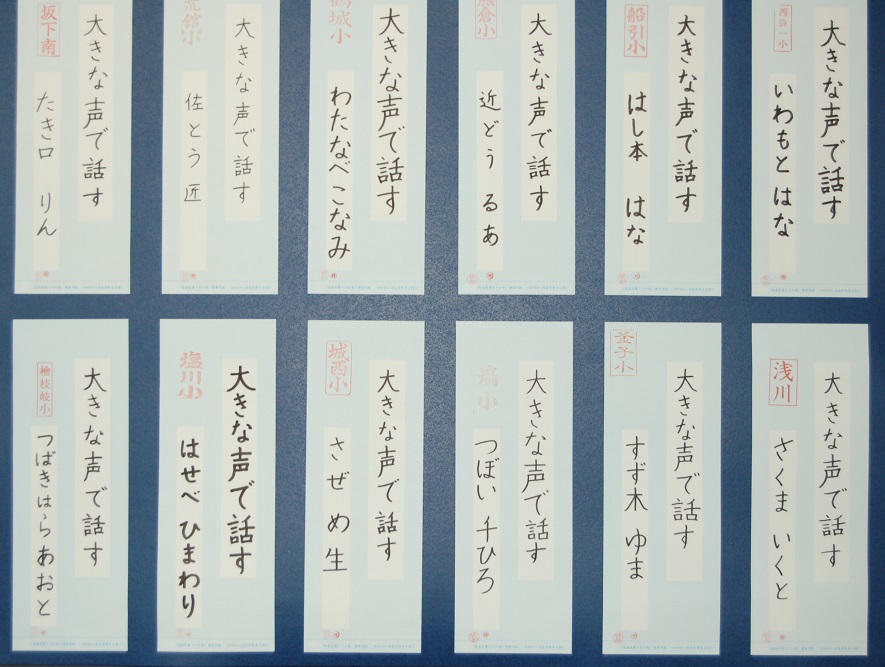 大きな声で話す
西袋一小
いわもと はな
大きな声で話す
船引小
はし本 はな
大きな声で話す
熊倉小
近どう るあ
大きな声で話す
鶴城小
わたなべこなみ
大きな声で話す
佐とう 匠
大きな声で話す
坂下南
たき口 りん
大きな声で話す
浅川
さくま いくと
大きな声で話す
釜子小
すず木 ゆま
大きな声で話す
塙小
つぼい 千ひろ
大きな声で話す
城西小
さぜ め生
大きな声で話す
塩川小
はせべ ひまわり
大きな声で話す
檜枝岐小
つばきはら あおと